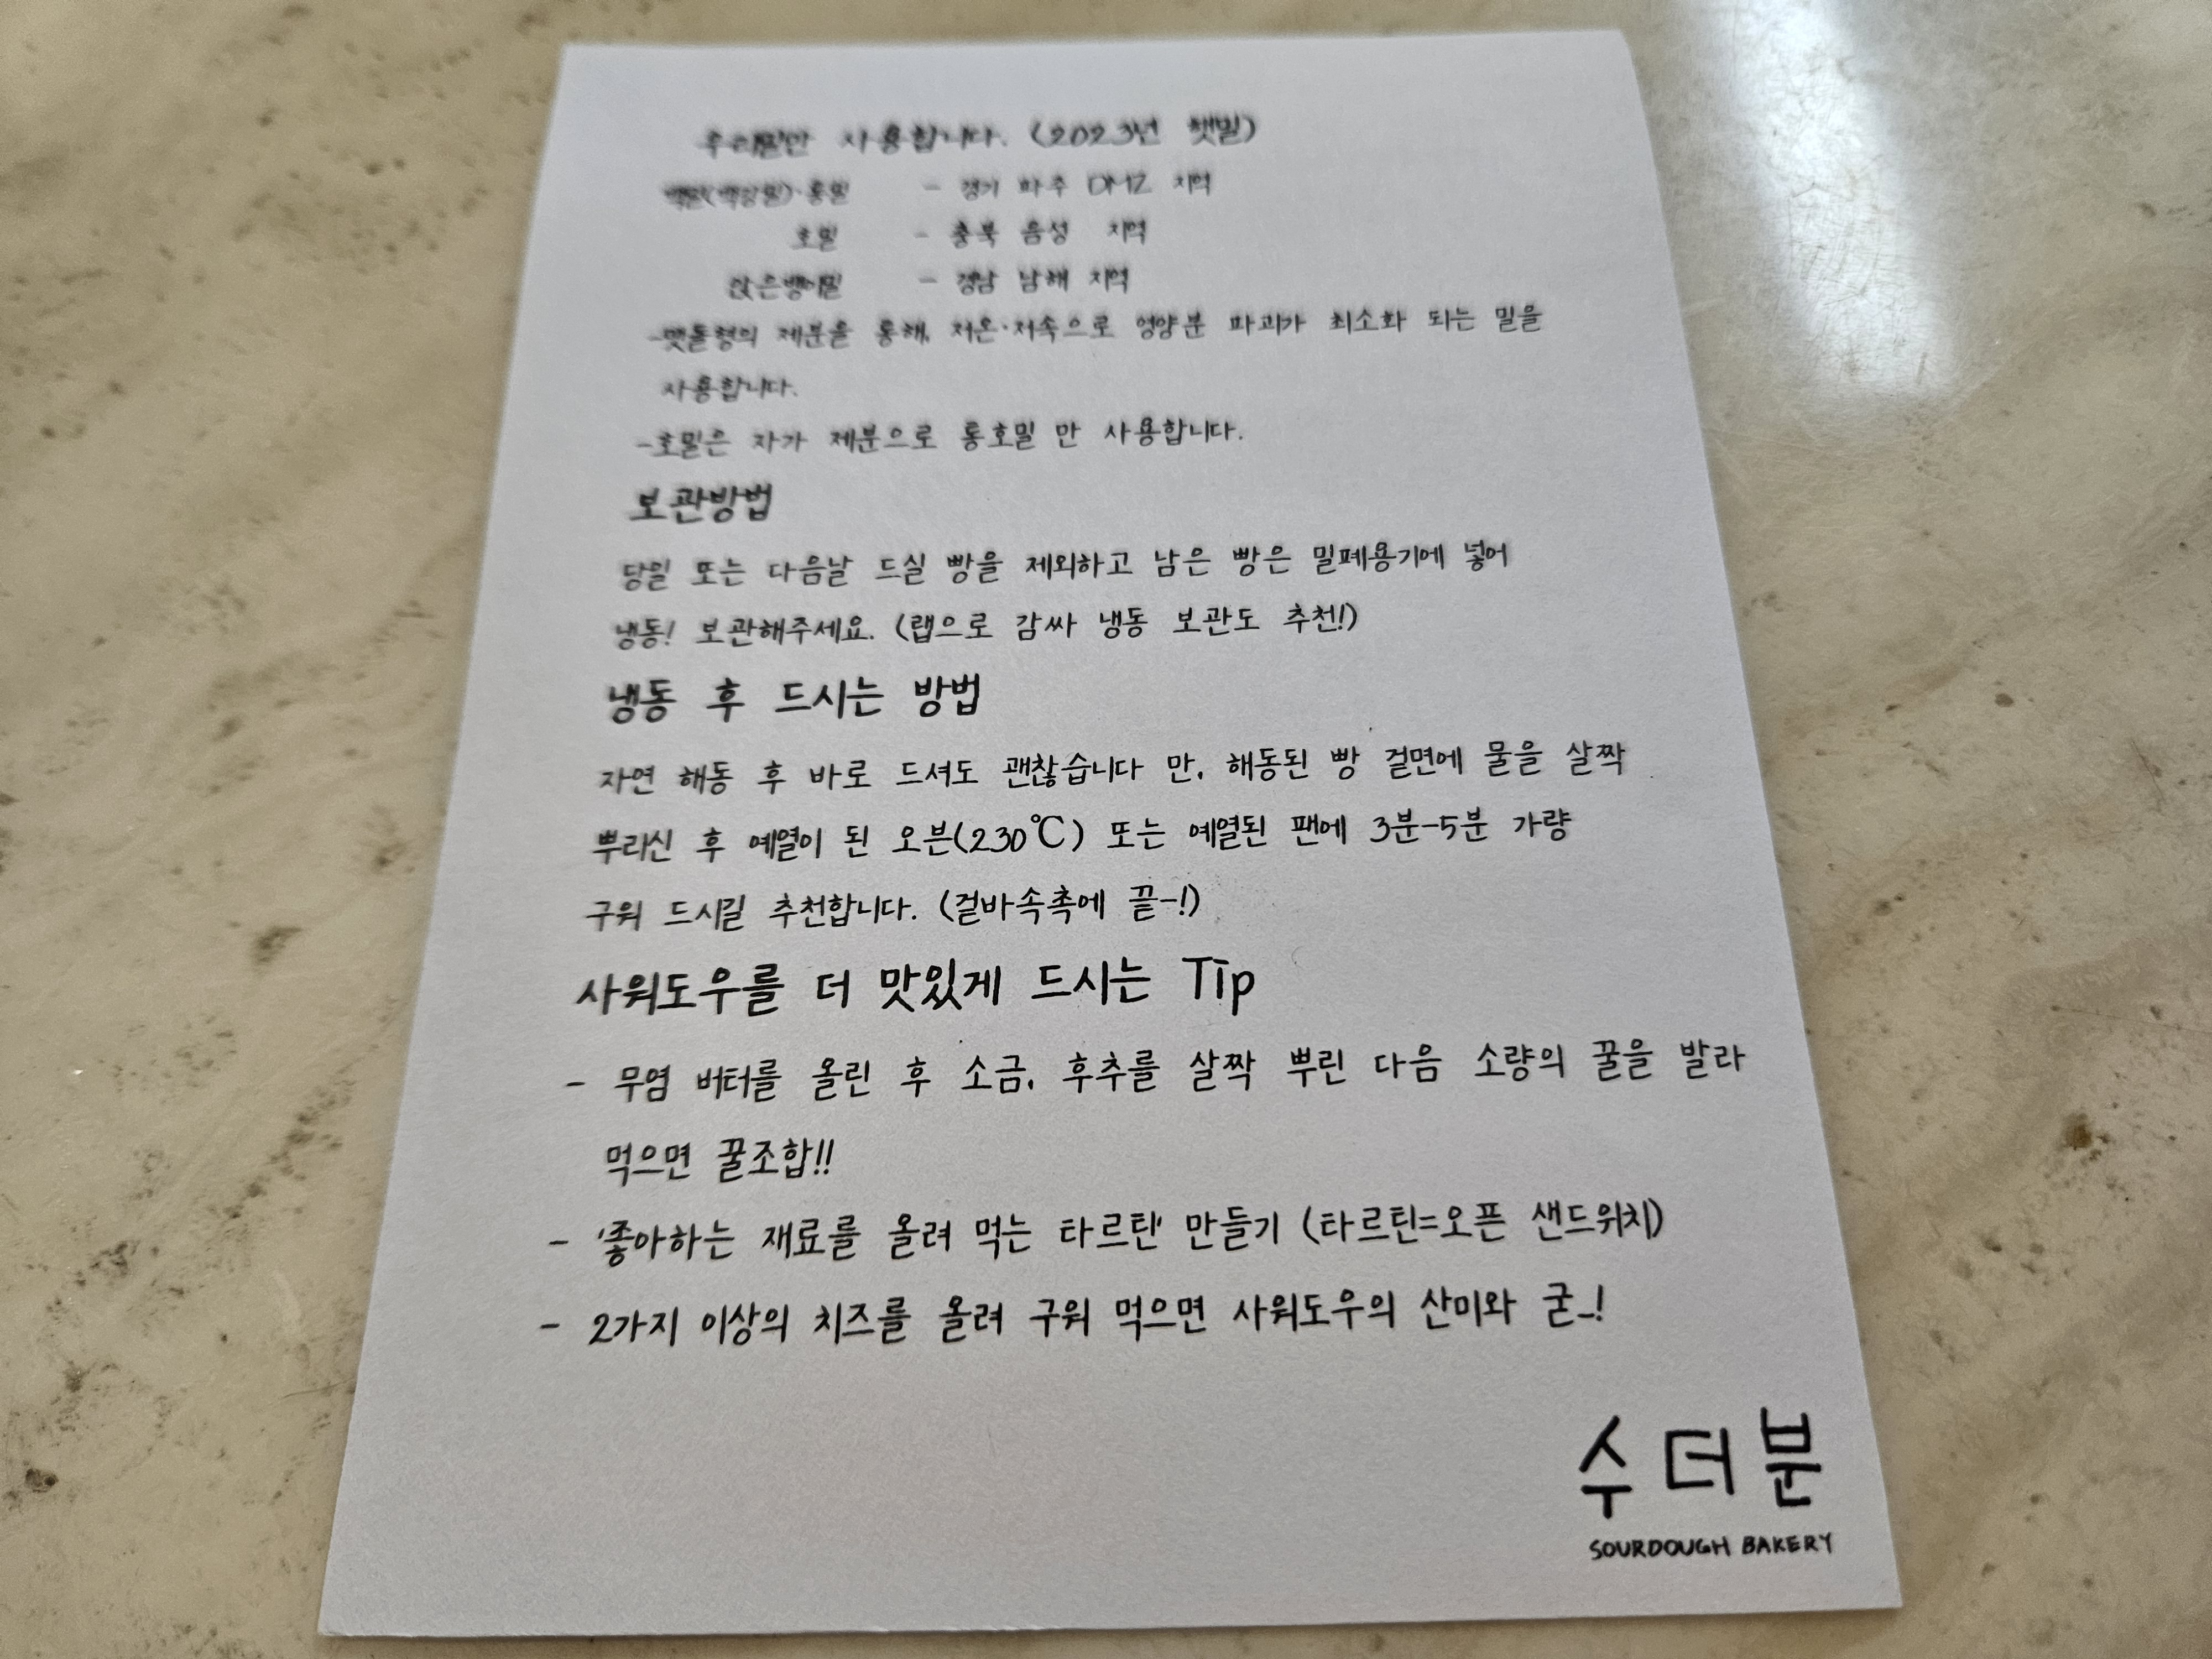 우리밀만 사용합니다. (2023년 햇밀)
백밀(백강밀)·통밀 - 경기 파주 DMZ 지역
호밀 - 충북 음성 지역
앉은뱅이밀 - 경남 남해 지역
-맷돌형의 제분을 통해, 저온·저속으로 영양분 파괴가 최소화 되는 밀을
사용합니다.
-호밀은 자가 제분으로 통호밀 만 사용합니다.
보관방법
당일 또는 다음날 드실 빵을 제외하고 남은 빵은 밀폐용기에 넣어
냉동! 보관해주세요. (랩으로 감싸 냉동 보관도 추천!)
냉동 후 드시는 방법
자연 해동 후 바로 드셔도 괜찮습니다 만, 해동된 빵 겉면에 물을 살짝
뿌리신 후 예열이 된 오븐(230℃) 또는 예열된 팬에 3분-5분 가량
구워 드시길 추천합니다. (겉바속촉에 끝-!)
사워도우를 더 맛있게 드시는 Tip
- 무염 버터를 올린 후 소금, 후추를 살짝 뿌린 다음 소량의 꿀을 발라
먹으면 꿀조합!!
- '좋아하는 재료를 올려 먹는 타르틴' 만들기 (타르틴=오픈 샌드위치)
- 2가지 이상의 치즈를 올려 구워 먹으면 사워도우의 산미와 굳_!
수더분
SOURDOUGH BAKERY